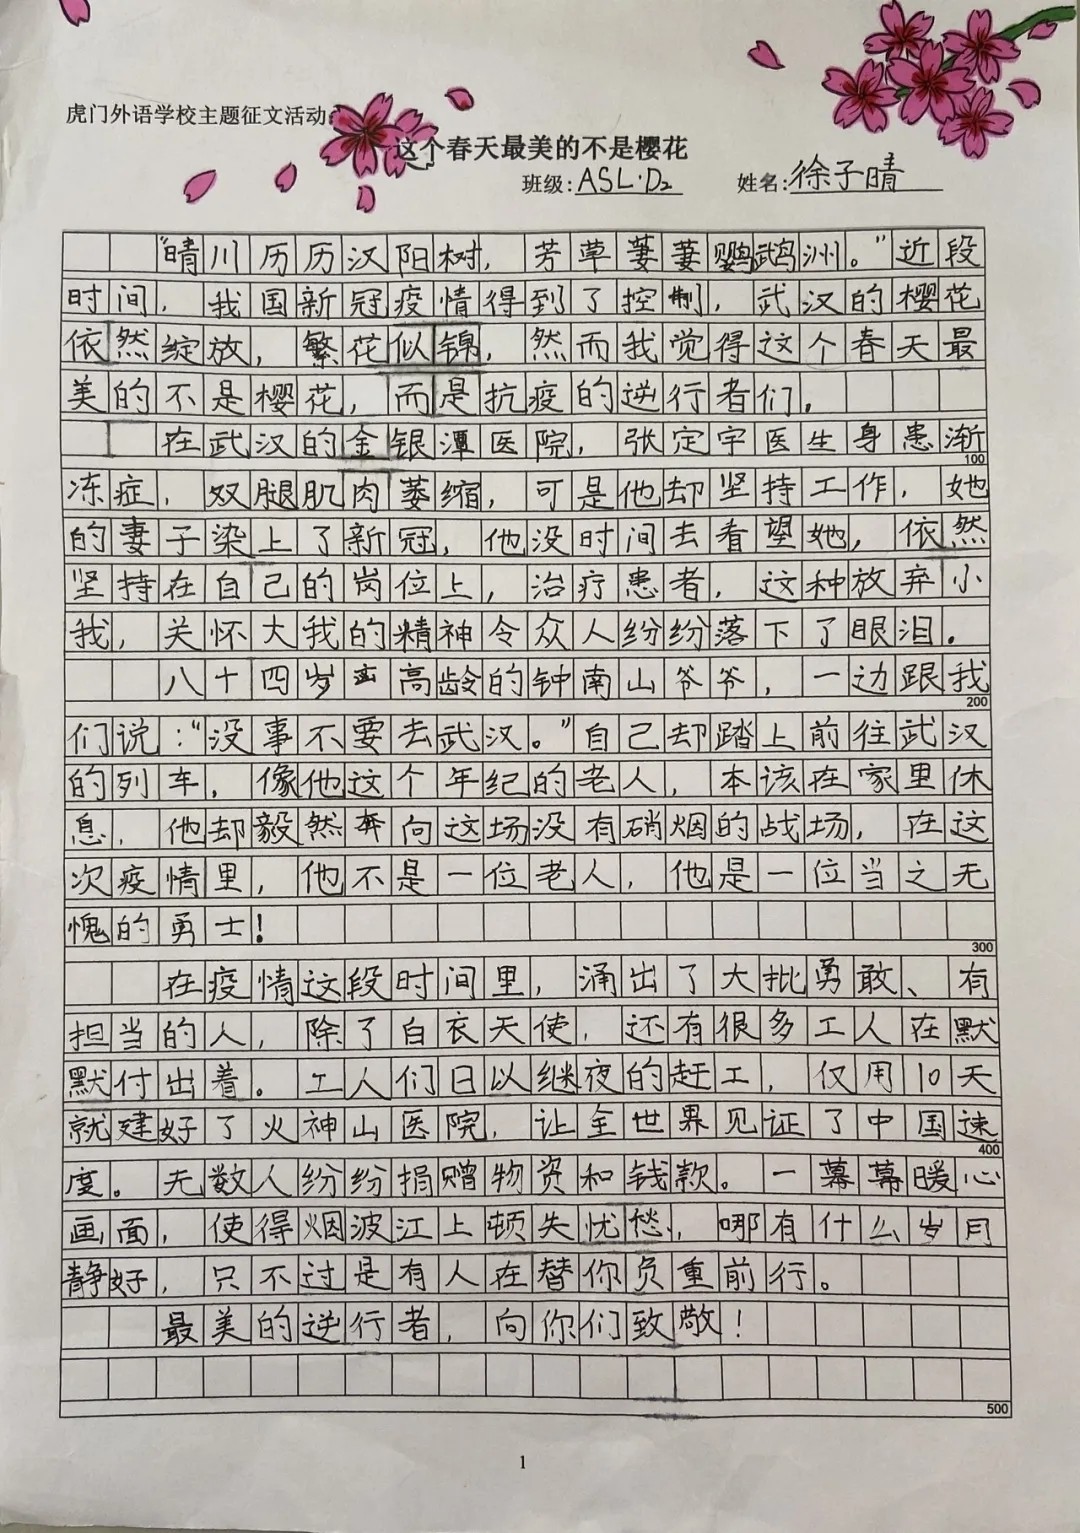 虎门外语学校主题征文活动:
这个春天最美的不是樱花
班级:ASL·D2 姓名:徐子晴
“晴川历历汉阳树，芳草萋萋鹦鹉洲。”近段
时间，我国新冠疫情得到了控制，武汉的樱花
依然绽放，繁花似锦，然而我觉得这个春天最
美的不是樱花，而是抗疫的逆行者们。
在武汉的金银潭医院，张定宇医生身患渐
100
冻症，双腿肌肉萎缩，可是他却坚持工作，她
的妻子染上了新冠，他没时间去看望她，依然
坚持在自己的岗位上，治疗患者，这种放弃小
我，关怀大我的精神令众人纷纷落下了眼泪。
八十四岁高龄的钟南山爷爷，一边跟我
200
们说：“没事不要去武汉。”自己却踏上前往武汉
的列车，像他这个年纪的老人，本该在家里休
息，他却毅然奔向这场没有硝烟的战场，在这
次疫情里，他不是一位老人，他是一位当之无
愧的勇士!
300
在疫情这段时间里，涌出了大批勇敢、有
担当的人，除了白衣天使，还有很多工人在默
默付出着。工人们日以继夜的赶工，仅用10天
就建好了火神山医院，让全世界见证了中国速
400
度。无数人纷纷捐赠物资和钱款。一幕幕暖心
画面，使得烟波江上顿失忧愁，哪有什么岁月
静好，只不过是有人在替你负重前行。
最美的逆行者，向你们致敬!
500
1